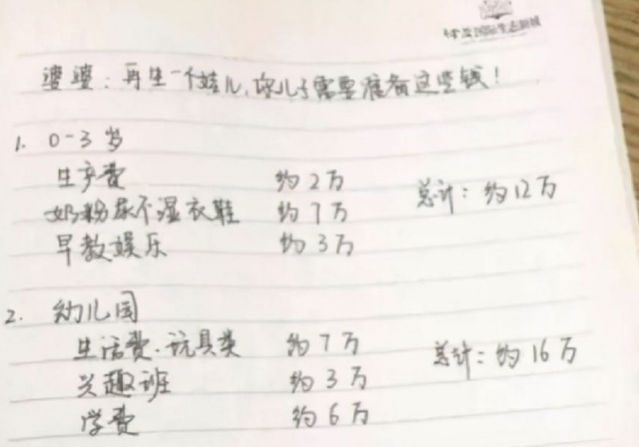 婆婆:再生一个娃儿,您儿子需要准备这些钱!
1. 0-3岁
生产费 约2万
奶粉尿不湿衣鞋 约7万 总计:约12万
早教娱乐 约3万
2. 幼儿园
生活费.玩具类 约7万
兴趣班 约3万 总计:约16万
学费 约6万